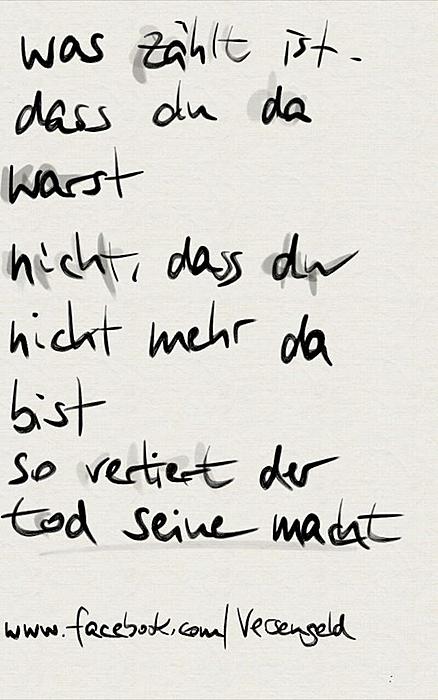 was zählt ist.
dass du da
warst
nicht, dass du
nicht mehr da
bist
so verliert der
tod seine macht
www.facebook.com/Versengeld